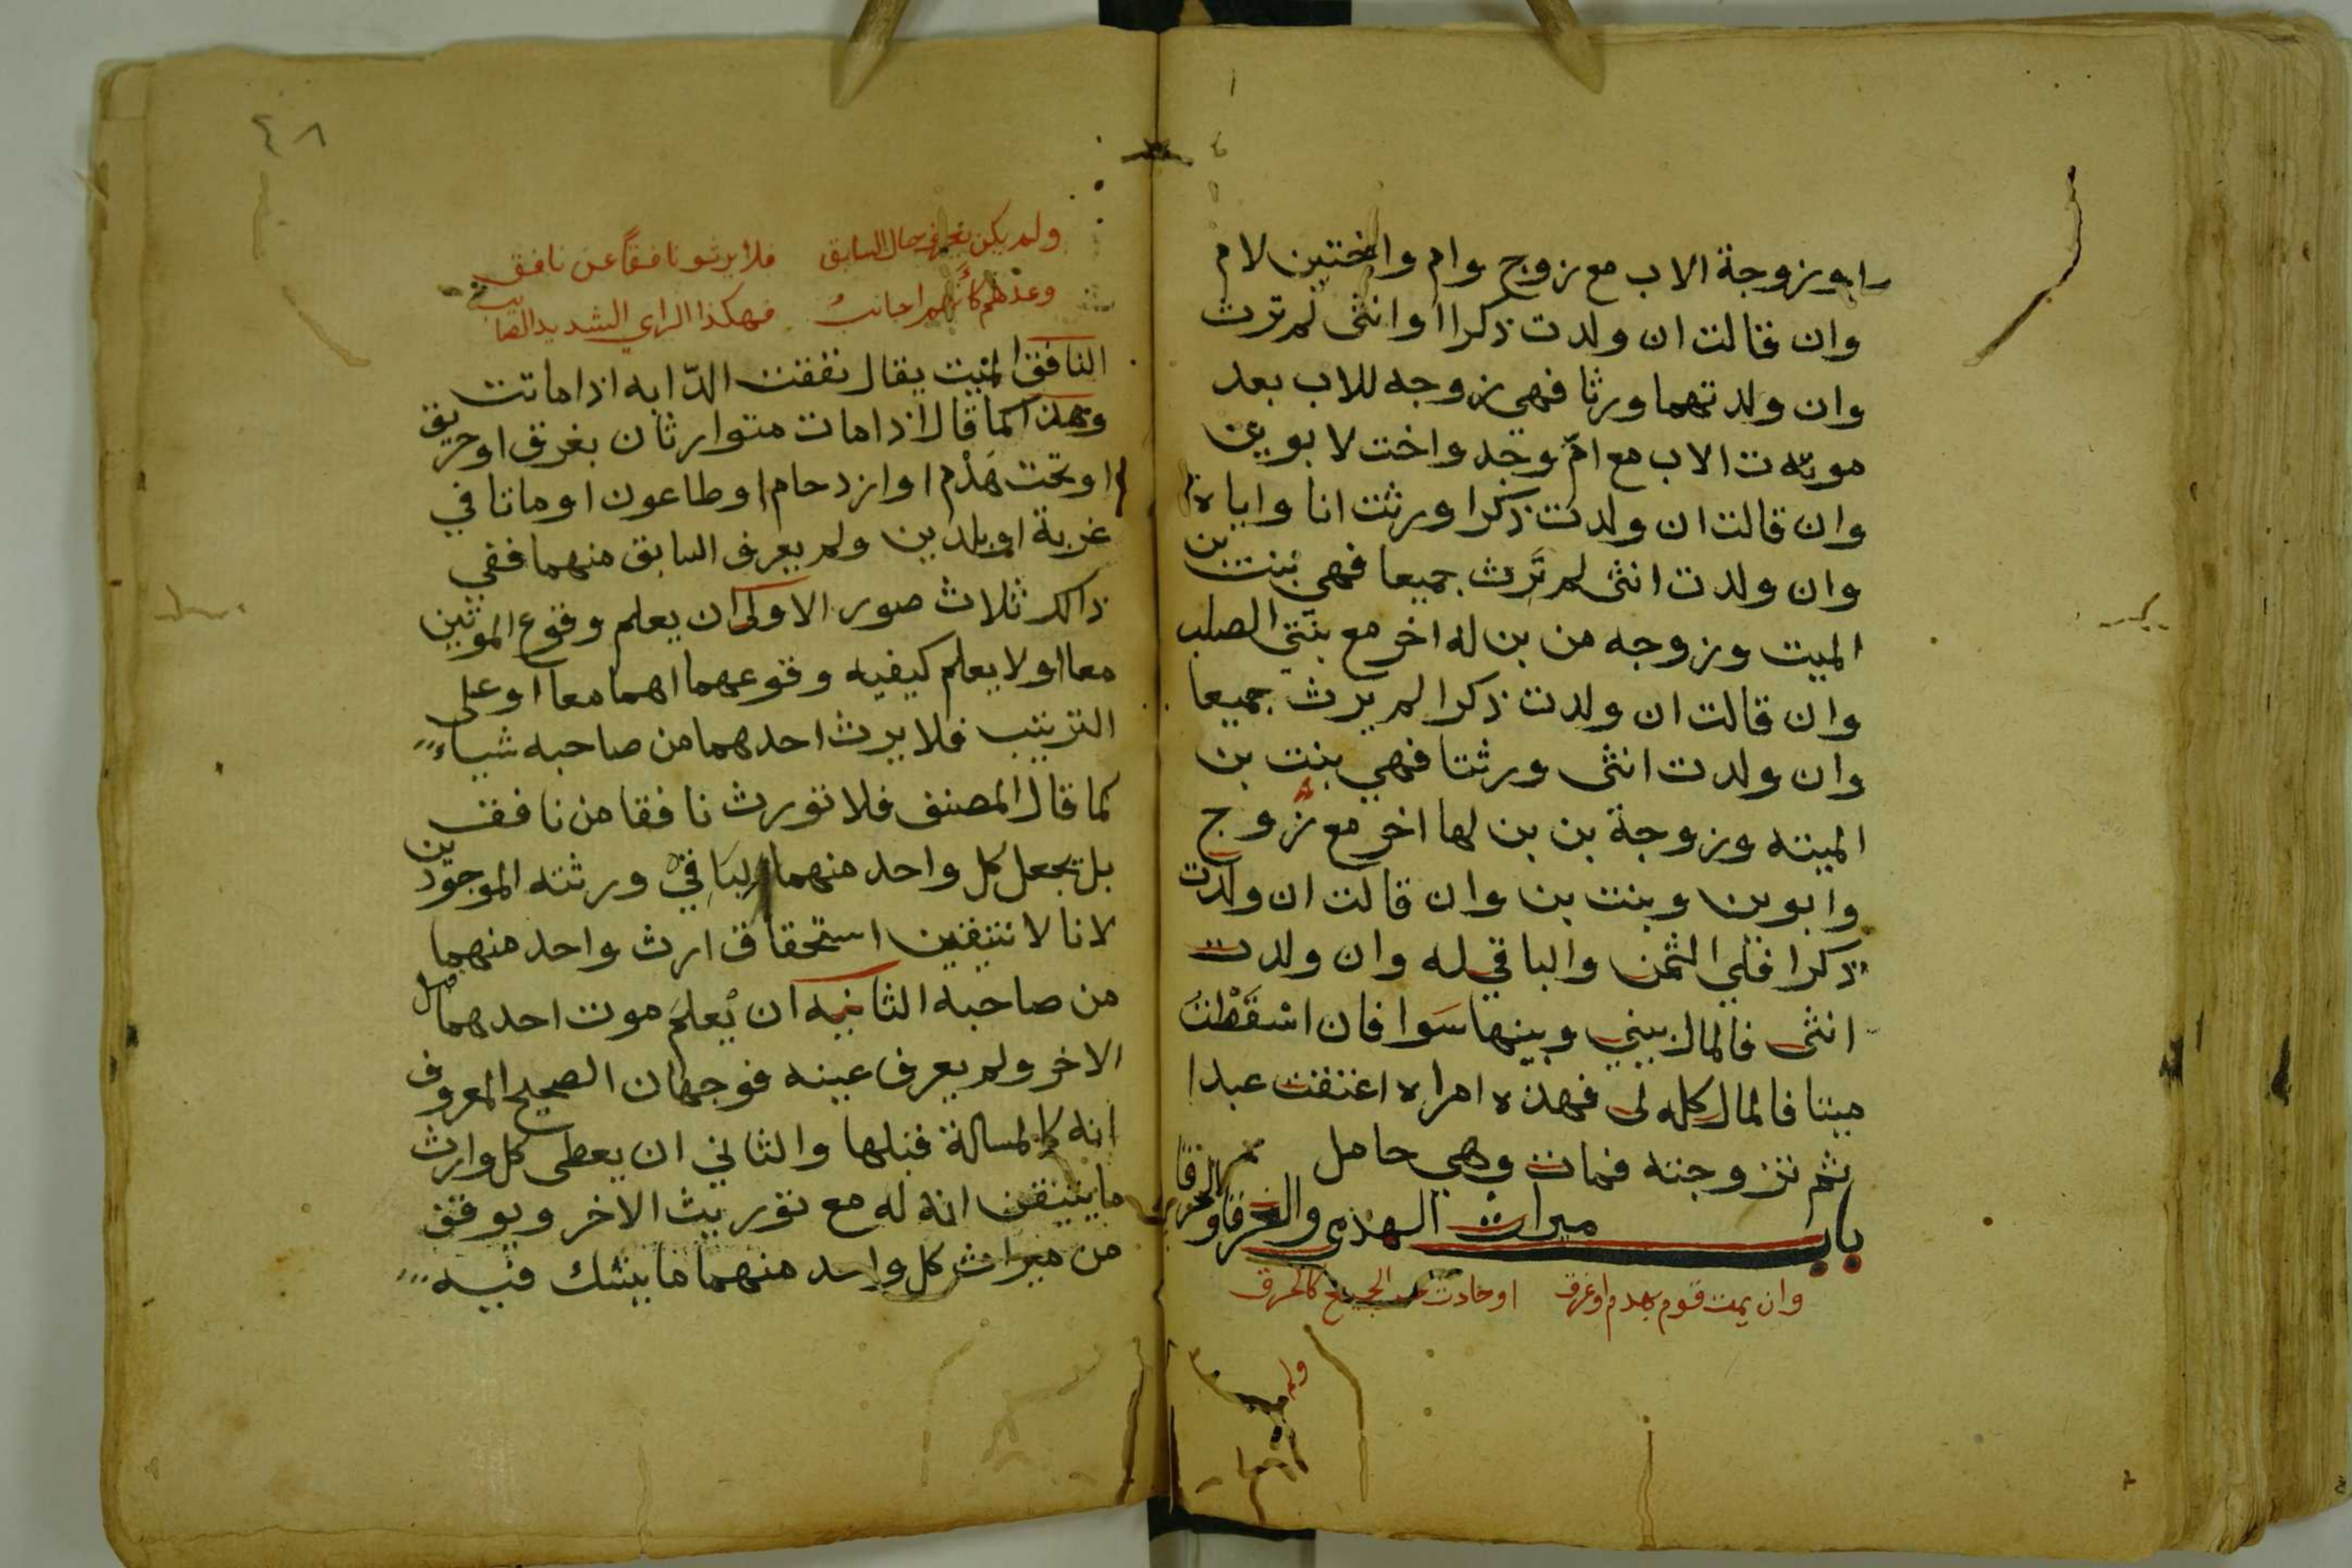 او زوجة الاب مع زوج وام واختين لام
وان قالت ان ولدت ذكرا او انثى لم ترث
وان ولدتهما ورثا فهي زوجه للاب بعد
موته الاب مع امّ وجد واخت لابوين
وان قالت ان ولدت ذكرا ورثت انا واياه
وان ولدت انثى لم تَرث جميعا فهي بنت بن
الميت وزوجه من بن له اخر مع بنتي الصلب
وان قالت ان ولدت ذكرا لم يرث جميعا
وان ولدت انثى ورثتا فهي بنت بن
الميته وزوجة بن بن لها اخر مع زوج
وابوين وبنت بن وان قالت ان ولدت
ذكرا فلي الثمن والباقي له وان ولدت
انثى فالمال بيني وبينها سَوا فان اسْقَطْتُ
ميتا فالمال كله لى فهذه امراه اعتقت عبدا
ثم تزوجته فمات وهي حامل
باب ميراث الهدمى والغرقا والحرقا
وان يمت قوم بهدم او غرق او حادث كالحرق
ولم
٤٨
ولم يكن يعلم حال السابق فلا يرثو نافقاً عن نافق
وعدهم كأنهم اجانبُ فهكذا الراي السديد الصايب
النافق الميت يقال نفقت الدّابه اذا ماتت
وهذا كما قال اذا مات متوارثان بغرق او حريق
او تحت هَدْم او ازدحام او طاعون او ماتا في
غربة او بلدين ولم يعرف السابق منهما ففي
ذالك ثلاث صور الاولى ان يعلم وقوع الموتين
معا او لا يعلم كيفيه وقوعهما اهما معا او على
الترتيب فلا يرث احدهما من صاحبه شياء
كما قال المصنف فلا تورث نافقا من نافق
بل يجعل كل واحد منهما لباقي ورثته الموجودين
لانا لا نتيقن استحقاق ارث واحد منهما
من صاحبه الثانيه ان يُعلمَ موت احدهما قبل
الاخر ولم يعرف عينه فوجهان الصحيح المعروف
انه كالمسالة قبلها والثاني ان يعطى كل وارث
ما يتيقن انه له مع توريث الاخر ويوقف
من ميراث كل واحد منهما ما يشك فيه